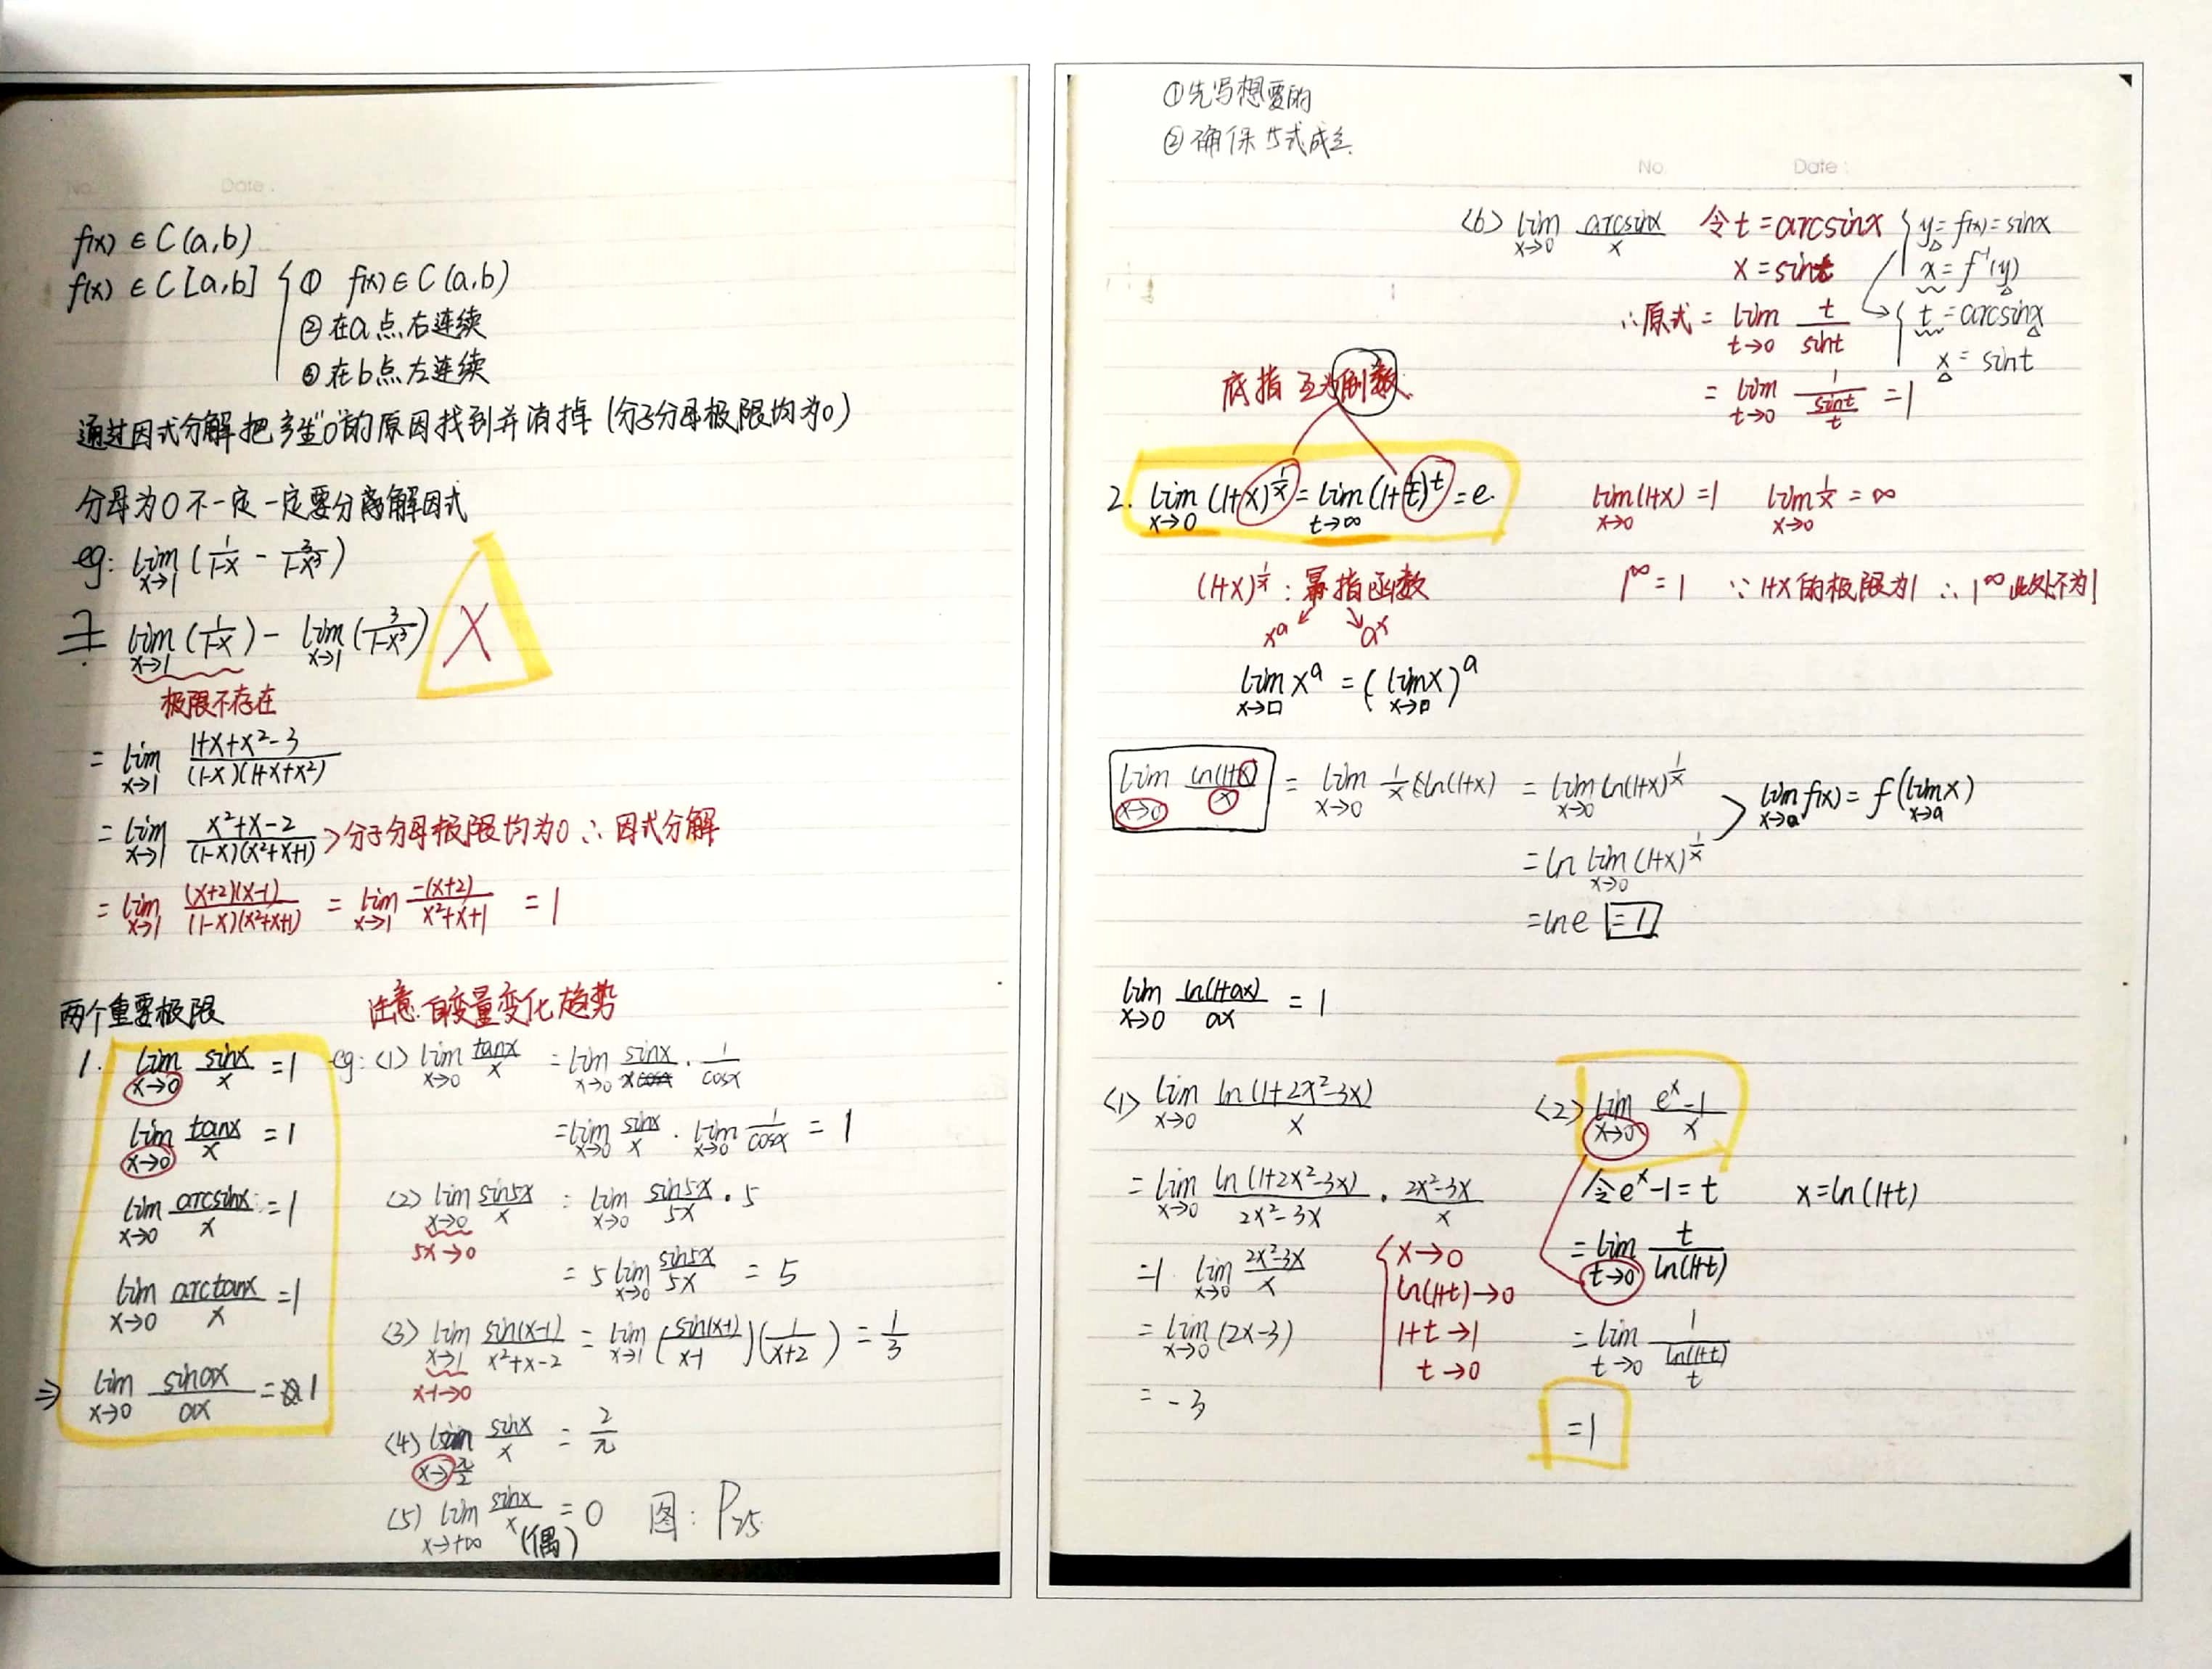 No. Date:
f(x) ∈ C(a,b)
f(x) ∈ C[a,b] { ① f(x) ∈ C(a,b)
②在a点右连续
③在b点左连续
通过因式分解把产生"0"的原因找到并消掉 (分子分母极限均为0)
分母为0不一定一定要分离解因式
eg: lim x→1 (1/(1-x) - 3/(1-x³))
≠ lim x→1 (1/(1-x)) - lim x→1 (3/(1-x³)) X
极限不存在
= lim x→1 (1+x+x²-3)/((1-x)(1+x+x²))
= lim x→1 (x²+x-2)/((1-x)(x²+x+1)) > 分子分母极限均为0 ∴因式分解
= lim x→1 ((x+2)(x-1))/((1-x)(x²+x+1)) = lim x→1 -(x+2)/(x²+x+1) = 1
两个重要极限 注意自变量变化趋势
1. lim x→0 sinx/x = 1
lim x→0 tanx/x = 1
lim x→0 arcsinx/x = 1
lim x→0 arctanx/x = 1
⇒ lim x→0 sinax/ax = 1
eg: (1) lim x→0 tanx/x = lim x→0 sinx/x · 1/cosx
= lim x→0 sinx/x · lim x→0 1/cosx = 1
(2) lim x→0 sin5x/x = lim x→0 sin5x/5x · 5
5x→0
= 5 lim x→0 sin5x/5x = 5
(3) lim x→1 sin(x-1)/(x²+x-2) = lim x→1 (sin(x-1)/(x-1))(1/(x+2)) = 1/3
x-1→0
(4) lim x→π/2 sinx/x = 2/π
(5) lim x→+∞ sinx/x = 0 图: P25
(偶)
①先写想要的
②确保与式成立.
No Date:
(6) lim x→0 arcsinx/x 令t=arcsinx { y=f(x)=sinx
x=sint x=f⁻¹(y)
∴原式= lim t→0 t/sint { t=arcsinx
x=sint
= lim t→0 1/(sint/t) = 1
底指互为倒数
2. lim x→0 (1+x)^(1/x) = lim t→∞ (1+1/t)^t = e. lim x→0 (1+x) = 1 lim x→0 1/x = ∞
(1+x)^(1/x) : 幂指函数 1^∞ = 1 ∵1+x的极限为1 ∴1^∞此处不为1
x^a a^x
lim x→□ x^a = (lim x→□ x)^a
lim x→0 ln(1+x)/x = lim x→0 1/x ln(1+x) = lim x→0 ln(1+x)^(1/x) > lim x→a f(x) = f(lim x→a x)
= ln lim x→0 (1+x)^(1/x)
= lne = 1
lim x→0 ln(1+ax)/ax = 1
(1) lim x→0 ln(1+2x²-3x)/x
= lim x→0 ln(1+2x²-3x)/(2x²-3x) · (2x²-3x)/x
= 1 · lim x→0 (2x²-3x)/x
= lim x→0 (2x-3)
= -3
(2) lim x→0 (e^x-1)/x
令e^x-1=t x=ln(1+t)
= lim t→0 t/ln(1+t)
{ x→0
ln(1+t)→0
1+t→1
t→0
= lim t→0 1/(ln(1+t)/t)
=1